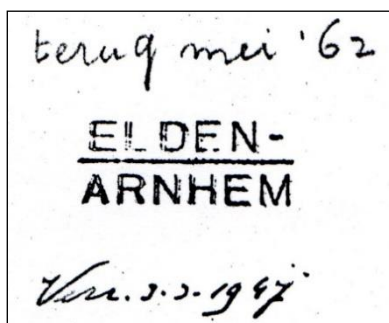 terug mei '62
ELDEN-
ARNHEM
Verz. 3.3.1947